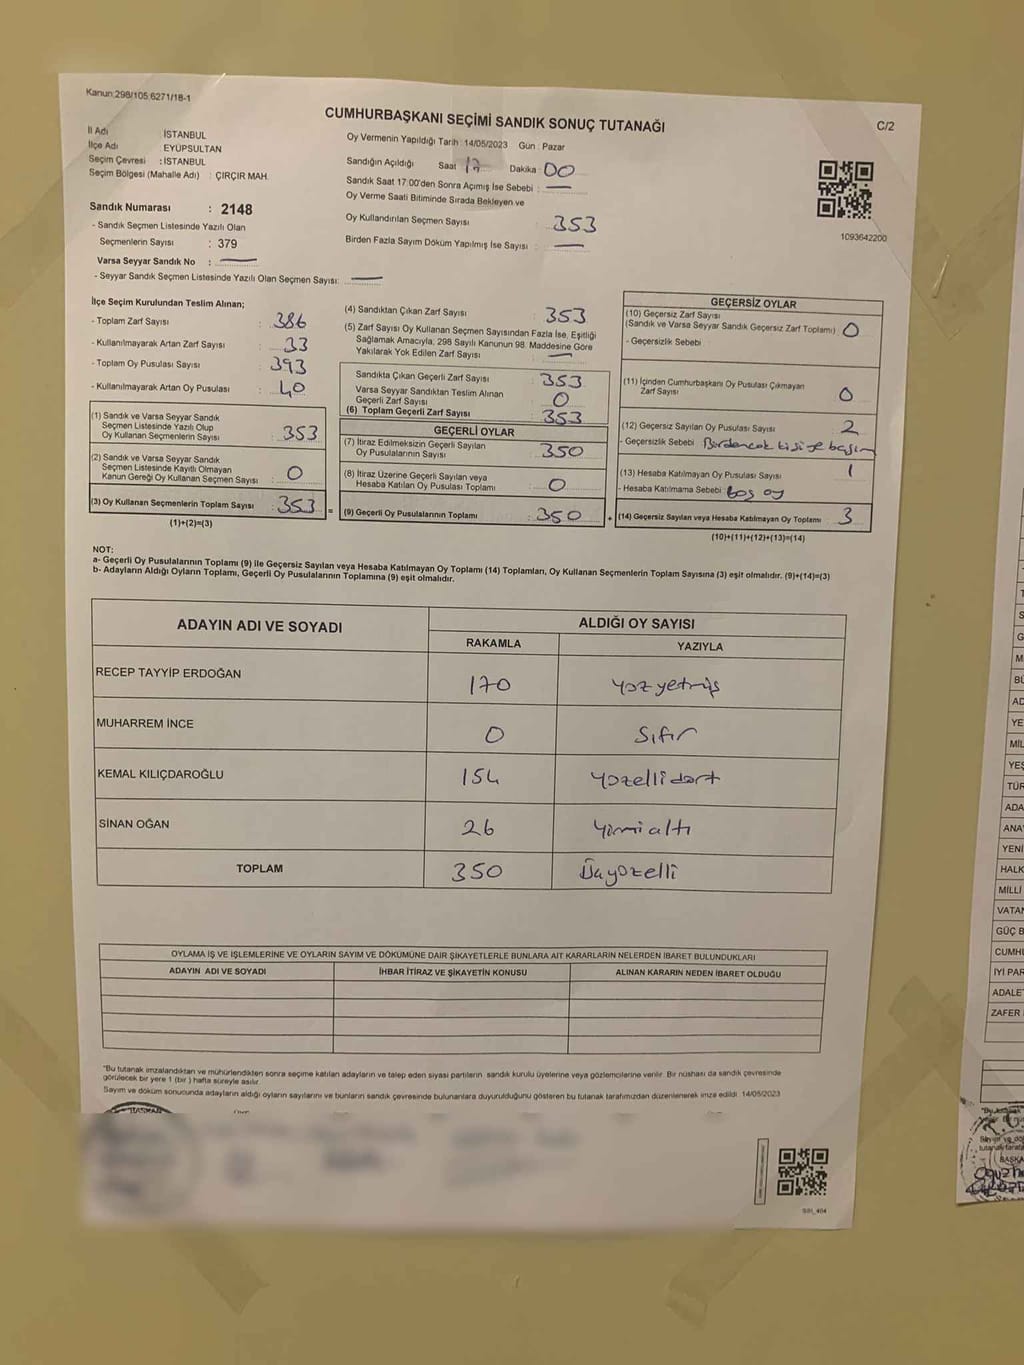 Kanun:298/105;6271/18-1
CUMHURBAŞKANI SEÇİMİ SANDIK SONUÇ TUTANAĞI
C/2
İl Adı İSTANBUL
İlçe Adı EYÜPSULTAN
Seçim Çevresi : İSTANBUL
Seçim Bölgesi (Mahalle Adı) : ÇIRÇIR MAH.
Sandık Numarası : 2148
- Sandık Seçmen Listesinde Yazılı Olan
Seçmenlerin Sayısı : 379
Varsa Seyyar Sandık No :
- Seyyar Sandık Seçmen Listesinde Yazılı Olan Seçmen Sayısı:
Oy Vermenin Yapıldığı Tarih :14/05/2023 Gün : Pazar
Sandığın Açıldığı Saat 17 Dakika 00
Sandık Saat 17:00'den Sonra Açımış İse Sebebi :
Oy Verme Saati Bitiminde Sırada Bekleyen ve
Oy Kullandırılan Seçmen Sayısı : 353
Birden Fazla Sayım Döküm Yapılmış İse Sayısı :
1093642200
İlçe Seçim Kurulundan Teslim Alınan;
- Toplam Zarf Sayısı : 386
- Kullanılmayarak Artan Zarf Sayısı : 33
- Toplam Oy Pusulası Sayısı : 393
- Kullanılmayarak Artan Oy Pusulası : 40
(1) Sandık ve Varsa Seyyar Sandık
Seçmen Listesinde Yazılı Olup
Oy Kullanan Seçmenlerin Sayısı : 353
(2) Sandık ve Varsa Seyyar Sandık
Seçmen Listesinde Kayıtlı Olmayan
Kanun Gereği Oy Kullanan Seçmen Sayısı : 0
(3) Oy Kullanan Seçmenlerin Toplam Sayısı : 353 =
(1)+(2)=(3)
(4) Sandıktan Çıkan Zarf Sayısı : 353
(5) Zarf Sayısı Oy Kullanan Seçmen Sayısından Fazla İse, Eşitliği
Sağlamak Amacıyla, 298 Sayılı Kanunun 98. Maddesine Göre
Yakılarak Yok Edilen Zarf Sayısı :
Sandıkta Çıkan Geçerli Zarf Sayısı : 353
Varsa Seyyar Sandıktan Teslim Alınan
Geçerli Zarf Sayısı : 0
(6) Toplam Geçerli Zarf Sayısı : 353
GEÇERLİ OYLAR
(7) İtiraz Edilmeksizin Geçerli Sayılan
Oy Pusulalarının Sayısı : 350
(8) İtiraz Üzerine Geçerli Sayılan veya
Hesaba Katılan Oy Pusulası Toplamı : 0
(9) Geçerli Oy Pusulalarının Toplamı : 350 +
GEÇERSİZ OYLAR
(10) Geçersiz Zarf Sayısı
(Sandık ve Varsa Seyyar Sandık Geçersiz Zarf Toplamı) : 0
- Geçersizlik Sebebi
(11) İçinden Cumhurbaşkanı Oy Pusulası Çıkmayan
Zarf Sayısı : 0
(12) Geçersiz Sayılan Oy Pusulası Sayısı : 2
- Geçersizlik Sebebi : Birdencok kişiye basım
(13) Hesaba Katılmayan Oy Pusulası Sayısı : 1
- Hesaba Katılmama Sebebi : boş oy
(14) Geçersiz Sayılan veya Hesaba Katılmayan Oy Toplamı : 3
(10)+(11)+(12)+(13)=(14)
NOT:
a- Geçerli Oy Pusulalarının Toplamı (9) ile Geçersiz Sayılan veya Hesaba Katılmayan Oy Toplamı (14) Toplamları, Oy Kullanan Seçmenlerin Toplam Sayısına (3) eşit olmalıdır. (9)+(14)=(3)
b- Adayların Aldığı Oyların Toplamı, Geçerli Oy Pusulalarının Toplamına (9) eşit olmalıdır.
ADAYIN ADI VE SOYADI ALDIĞI OY SAYISI
RAKAMLA YAZIYLA
RECEP TAYYİP ERDOĞAN 170 yüzyetmiş
MUHARREM İNCE 0 Sıfır
KEMAL KILIÇDAROĞLU 154 yüzellidört
SİNAN OĞAN 26 yirmialtı
TOPLAM 350 Üçyüzelli
OYLAMA İŞ VE İŞLEMLERİNE VE OYLARIN SAYIM VE DÖKÜMÜNE DAİR ŞİKAYETLERLE BUNLARA AİT KARARLARIN NELERDEN İBARET BULUNDUKLARI
ADAYIN ADI VE SOYADI İHBAR İTİRAZ VE ŞİKAYETİN KONUSU ALINAN KARARIN NEDEN İBARET OLDUĞU
*Bu tutanak imzalandıktan ve mühürlendikten sonra seçime katılan adayların ve talep eden siyasi partilerin sandık kurulu üyelerine veya gözlemcilerine verilir. Bir nüshası da sandık çevresinde
görülecek bir yere 1 (bir ) hafta süreyle asılır.
Sayım ve döküm sonucunda adayların aldığı oyların sayılarını ve bunların sandık çevresinde bulunanlara duyurulduğunu gösteren bu tutanak tarafımızdan düzenlenerek imza edildi. 14/05/2023
BAŞKAN